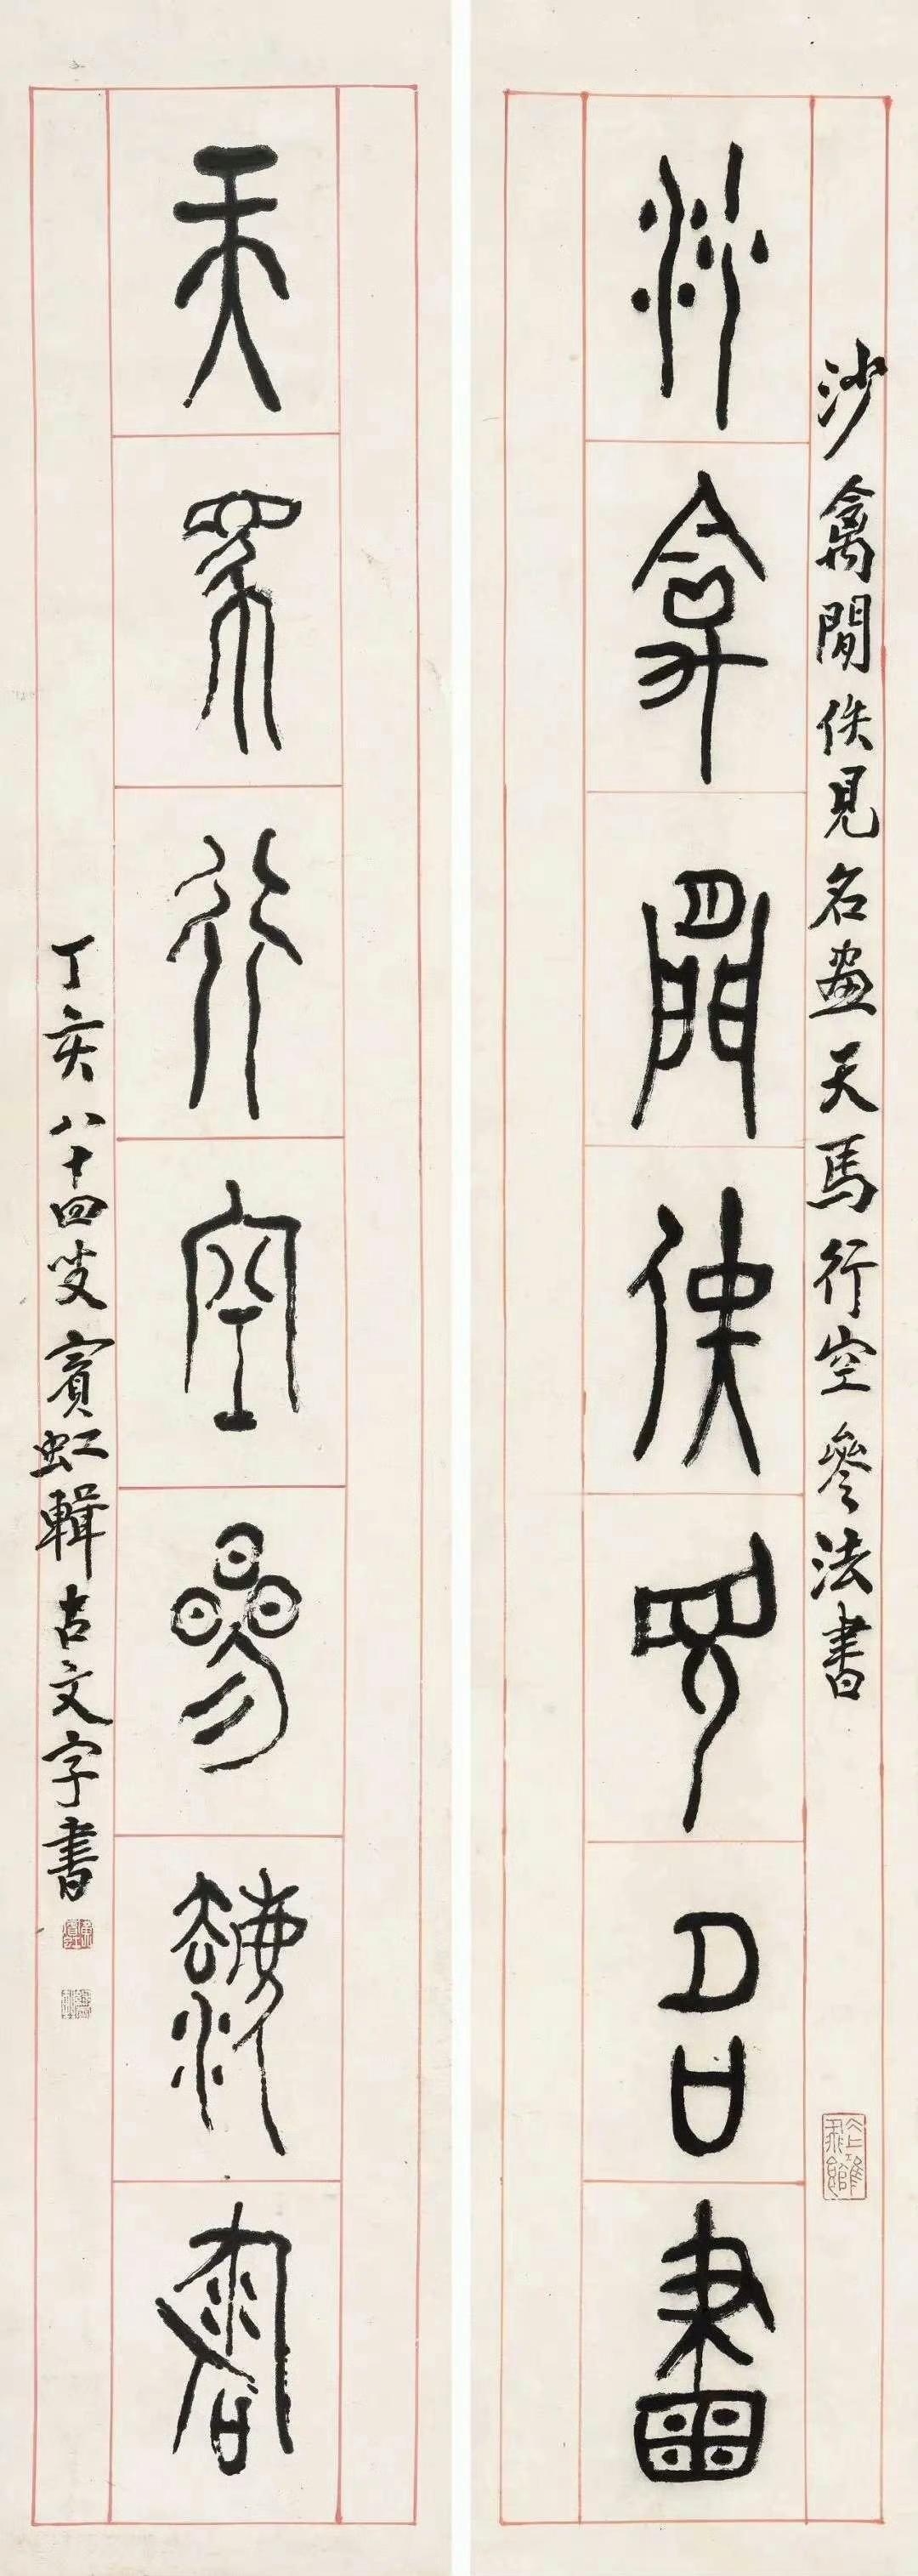 沙禽閒佚見名畫天馬行空參法書
沙禽閒佚見名畫
天馬行空參法書
丁亥八十四叟賓虹輯古文字書